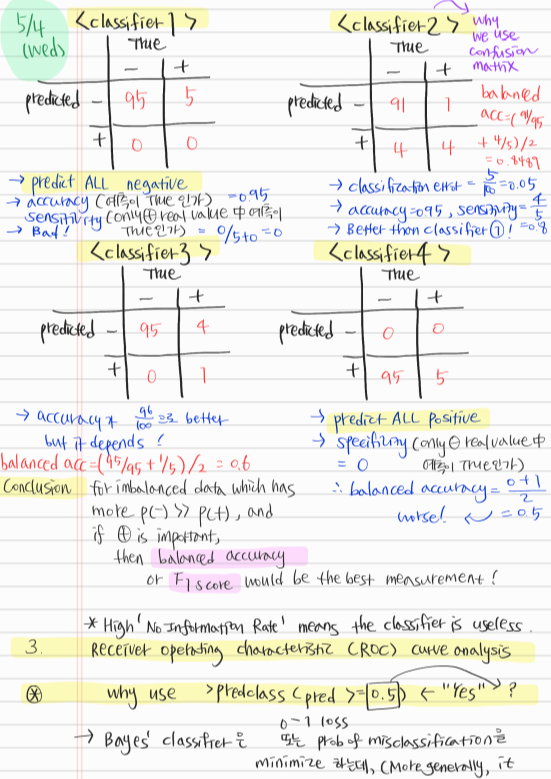 5/4
(wed)
<classifier1>
True
- +
predicted - 95 5
+ 0 0
→ predict ALL negative
→ accuracy (예측이 True 인가) = 0.95
sensitivity (only ⊕ real value 中 예측이
→ Bad! True인가) = 0/5+0 = 0
<classifier2>
why
we use
confusion
matrix
True
- +
predicted - 91 1
+ 4 4
balanced
acc = (91/95
+ 4/5)/2
= 0.8489
→ classification error = 5/100 = 0.05
→ accuracy = 0.95, sensitivity = 4/5
→ Better than classifier ①! = 0.8
<classifier3>
True
- +
predicted - 95 4
+ 0 1
→ accuracy가 96/100 으로 better
but it depends!
balanced acc = (95/95 + 1/5)/2 = 0.6
<classifier4>
True
- +
predicted - 0 0
+ 95 5
→ predict ALL positive
→ specificity (only ⊖ real value 中
= 0 예측이 TRUE인가)
∴ balanced accuracy = 0+1/2
worse! = 0.5
Conclusion for imbalanced data which has
more p(-) >> p(+), and
if ⊕ is important,
then balanced accuracy
or F1 score would be the best measurement!
* High 'No Information Rate' means the classifier is useless.
3. Receiver operating characteristic (ROC) curve analysis
⊛ why use >predclass(pred >= 0.5) ← "Yes" ?
0-1 loss
→ Bayes' classifier은 또는 prob of misclassification을
minimize 하는데, (More generally, it